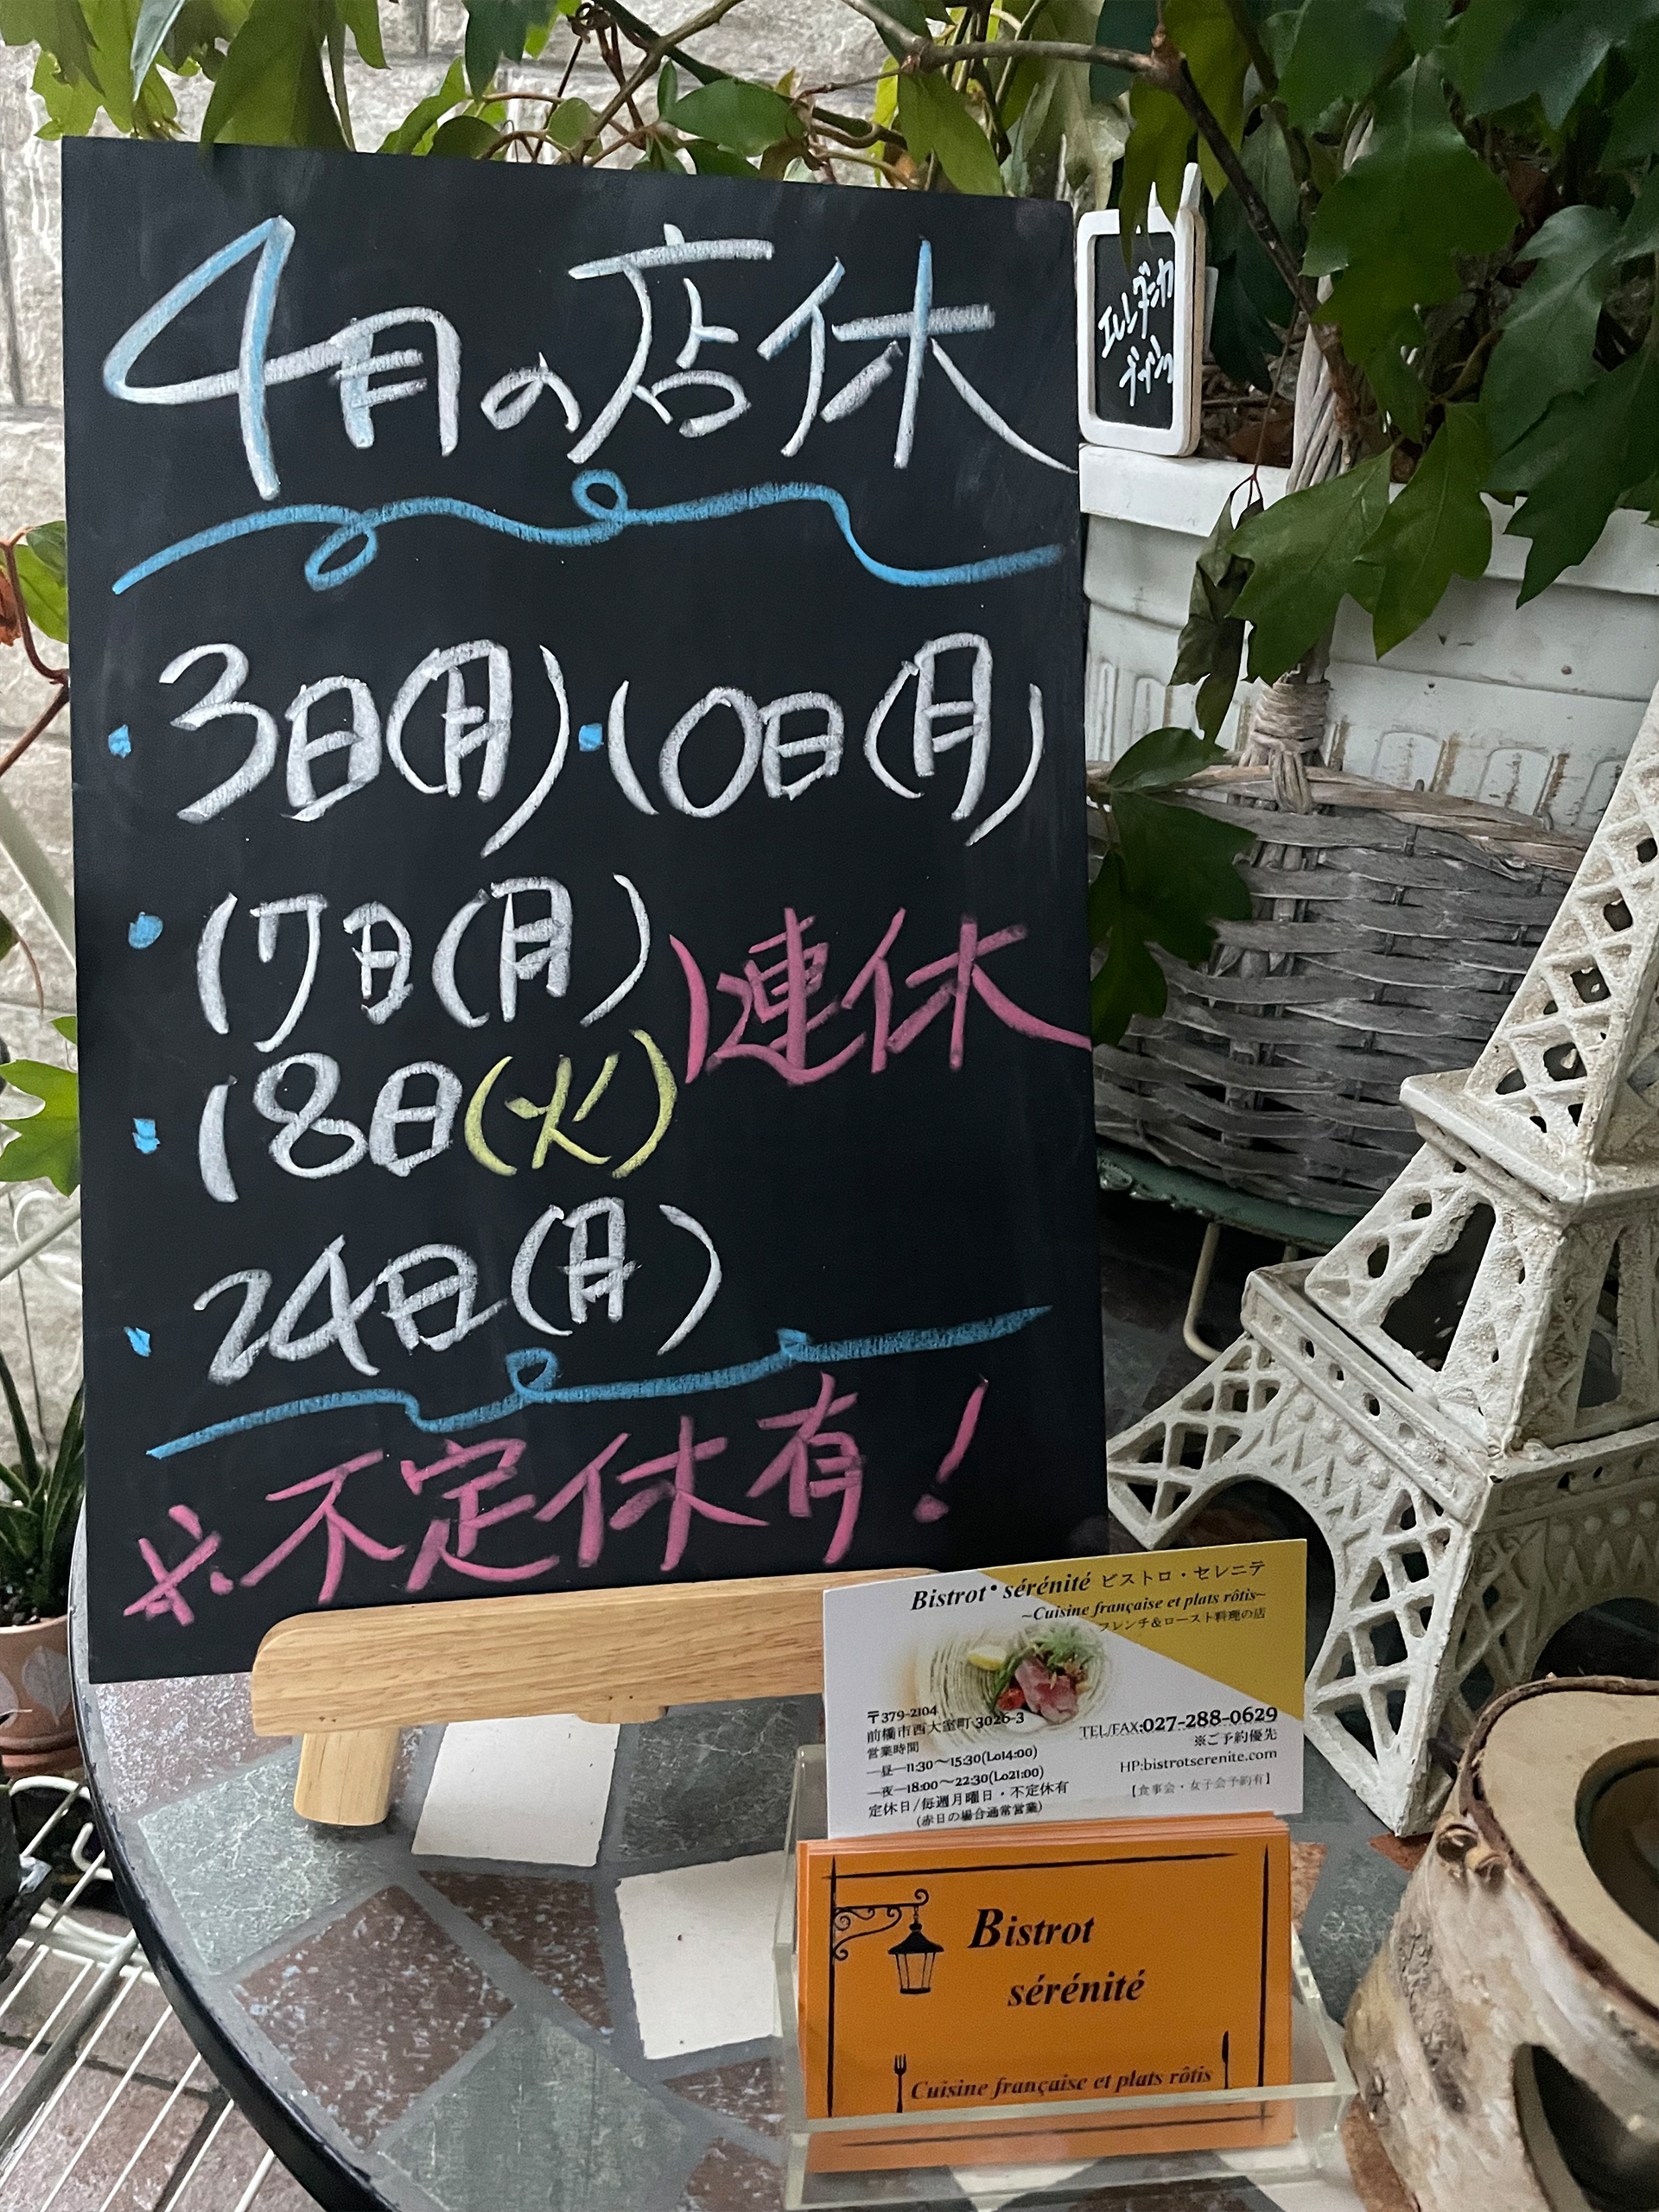 4月の店休
・3日(月)・10日(月)
・17日(月)
連休
・18日(火)
・24日(月)
※不定休有!
エレンダニカ
Bistrot・sérénité ビストロ・セレニテ
~Cuisine française et plats rôtis~
フレンチ&ロースト料理の店
〒379-2104
前橋市西大室町3026-3
営業時間
―昼―11:30~15:30(Lo14:00)
―夜―18:00~22:30(Lo21:00)
定休日/毎週月曜日・不定休有
(赤日の場合通常営業)
TEL/FAX:027-288-0629
※ご予約優先
HP:bistrotserenite.com
【食事会・女子会予約有】
Bistrot
sérénité
Cuisine française et plats rôtis